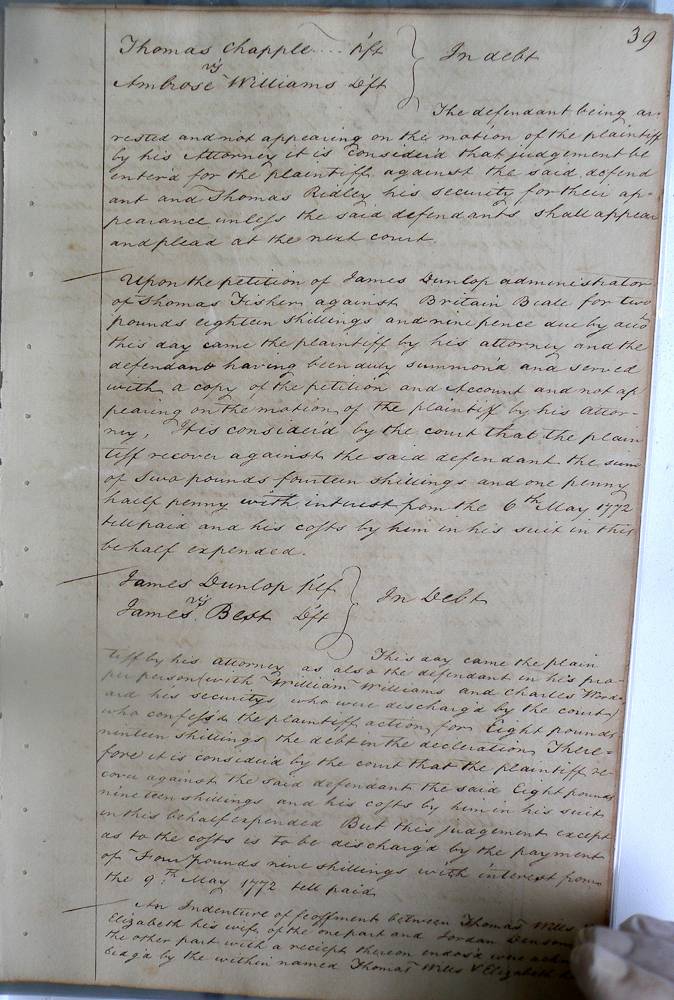 39
Thomas Chapple .... Plft
vs
Ambrose Williams Dft
In debt
The defendant being ar
rested and not appearing on the motion of the plaintiff
by his Attorney it is Considerd that judgement be
enter'd for the plaintiff against the said defend
ant and Thomas Ridley his security for their ap-
pearance unless the said defendants shall appear
and plead at the next court.
Upon the petition of James Dunlop administrator
of Thomas Fisher against Britain Beale for two
pounds eighteen shillings and nine pence due by acco
this day came the plaintiff by his attorney and the
defendant having been duly summon'd and served
with a copy of the petition and Account and not ap
pearing on the motion of the plaintiff by his attor-
ney, It is consider'd by the court that the plain
tiff recover against the said defendant the sum
of two pounds fourteen shillings and one penny
half penny with interest from the 6th May 1772
till paid and his costs by him in his suit in this
behalf expended.
James Dunlop Plf
vs
James Dft
In Debt
This day came the plain
tiff by his attorney as also the defendant in his pro-
per person (with William Williams and Charles Wood
ard his securitys who were discharg'd by the court)
who confess'd the plaintiff action for Eight pounds
ninteen shillings the debt in the decleration There-
fore it is consider'd by the court that the plaintiff re-
cover against the said defendant the said Eight pounds
nineteen shillings and his costs by him in his suit
in this behalf expended But this judgement except
as to the costs is to be discharg'd by the payment
of Four pounds nine shillings with interest from
the 9th May 1772 till paid
An Indenture of feoffment between Thomas Wills
Elizabeth his wife of the one part and Jordan Denson
the other part with a reciept thereon endors'd were ackn
ledg'd by the within named Thomas Wills & Elizabeth